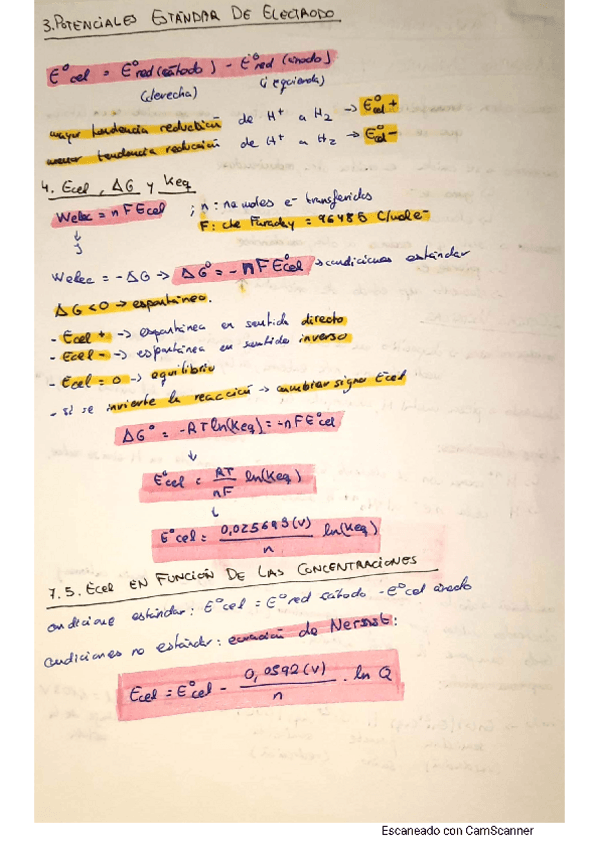 3. POTENCIALES ESTÁNDAR DE ELECTRODO
E°cel = E°red (cátodo) - E°red (ánodo)
(derecha) (izquierda)
mayor tendencia reducción de H⁺ a H₂ → E°cel +
menor tendencia reducción de H⁺ a H₂ → E°cel -
4. Ecel, ΔG y Keq
Welec = n F Ecel ; n: nº moles e⁻ transferidos
F: cte Faraday = 96485 C/mol e⁻
↓
J
Welec = -ΔG → ΔG° = -nFE°cel → condiciones estándar
ΔG < 0 → espontáneo.
- Ecel + → espontánea en sentido directo
- Ecel - → espontánea en sentido inverso
- Ecel = 0 → equilibrio
- si se invierte la reacción → cambiar signo Ecel
ΔG° = -RTln(Keq) = -nFE°cel
↓
E°cel = RT/nF ln(Keq)
↓
E°cel = 0,025693 (V)/n ln(Keq)
7.5. Ecel EN FUNCIÓN DE LAS CONCENTRACIONES
condiciones estándar: E°cel = E°red cátodo - E°cel ánodo
condiciones no estándar: ecuación de Nernst:
Ecel = E°cel - 0,0592 (V)/n · ln Q
Escaneado con CamScanner